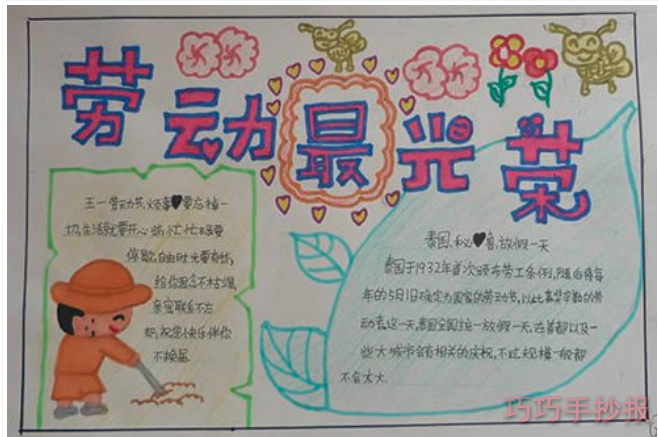 劳动最光荣
五一劳动节,烦事要忘掉一
切,生活就要开心些,忙忙碌碌要
停歇,自由时光要有些,
给你思念不枯竭,
亲密联系不太
却,祝您快乐伴你
不换届.
泰国,秘鲁,放假一天
泰国于1932年首次颁布劳工条例,随后将每
年的5月1日确定为国家的劳动节,以此嘉奖辛勤的劳
动者,这一天,泰国全国统一放假一天,在首都以及一
些大城市会有相关的庆祝,不过规模一般都
不会太大.
巧巧手抄报